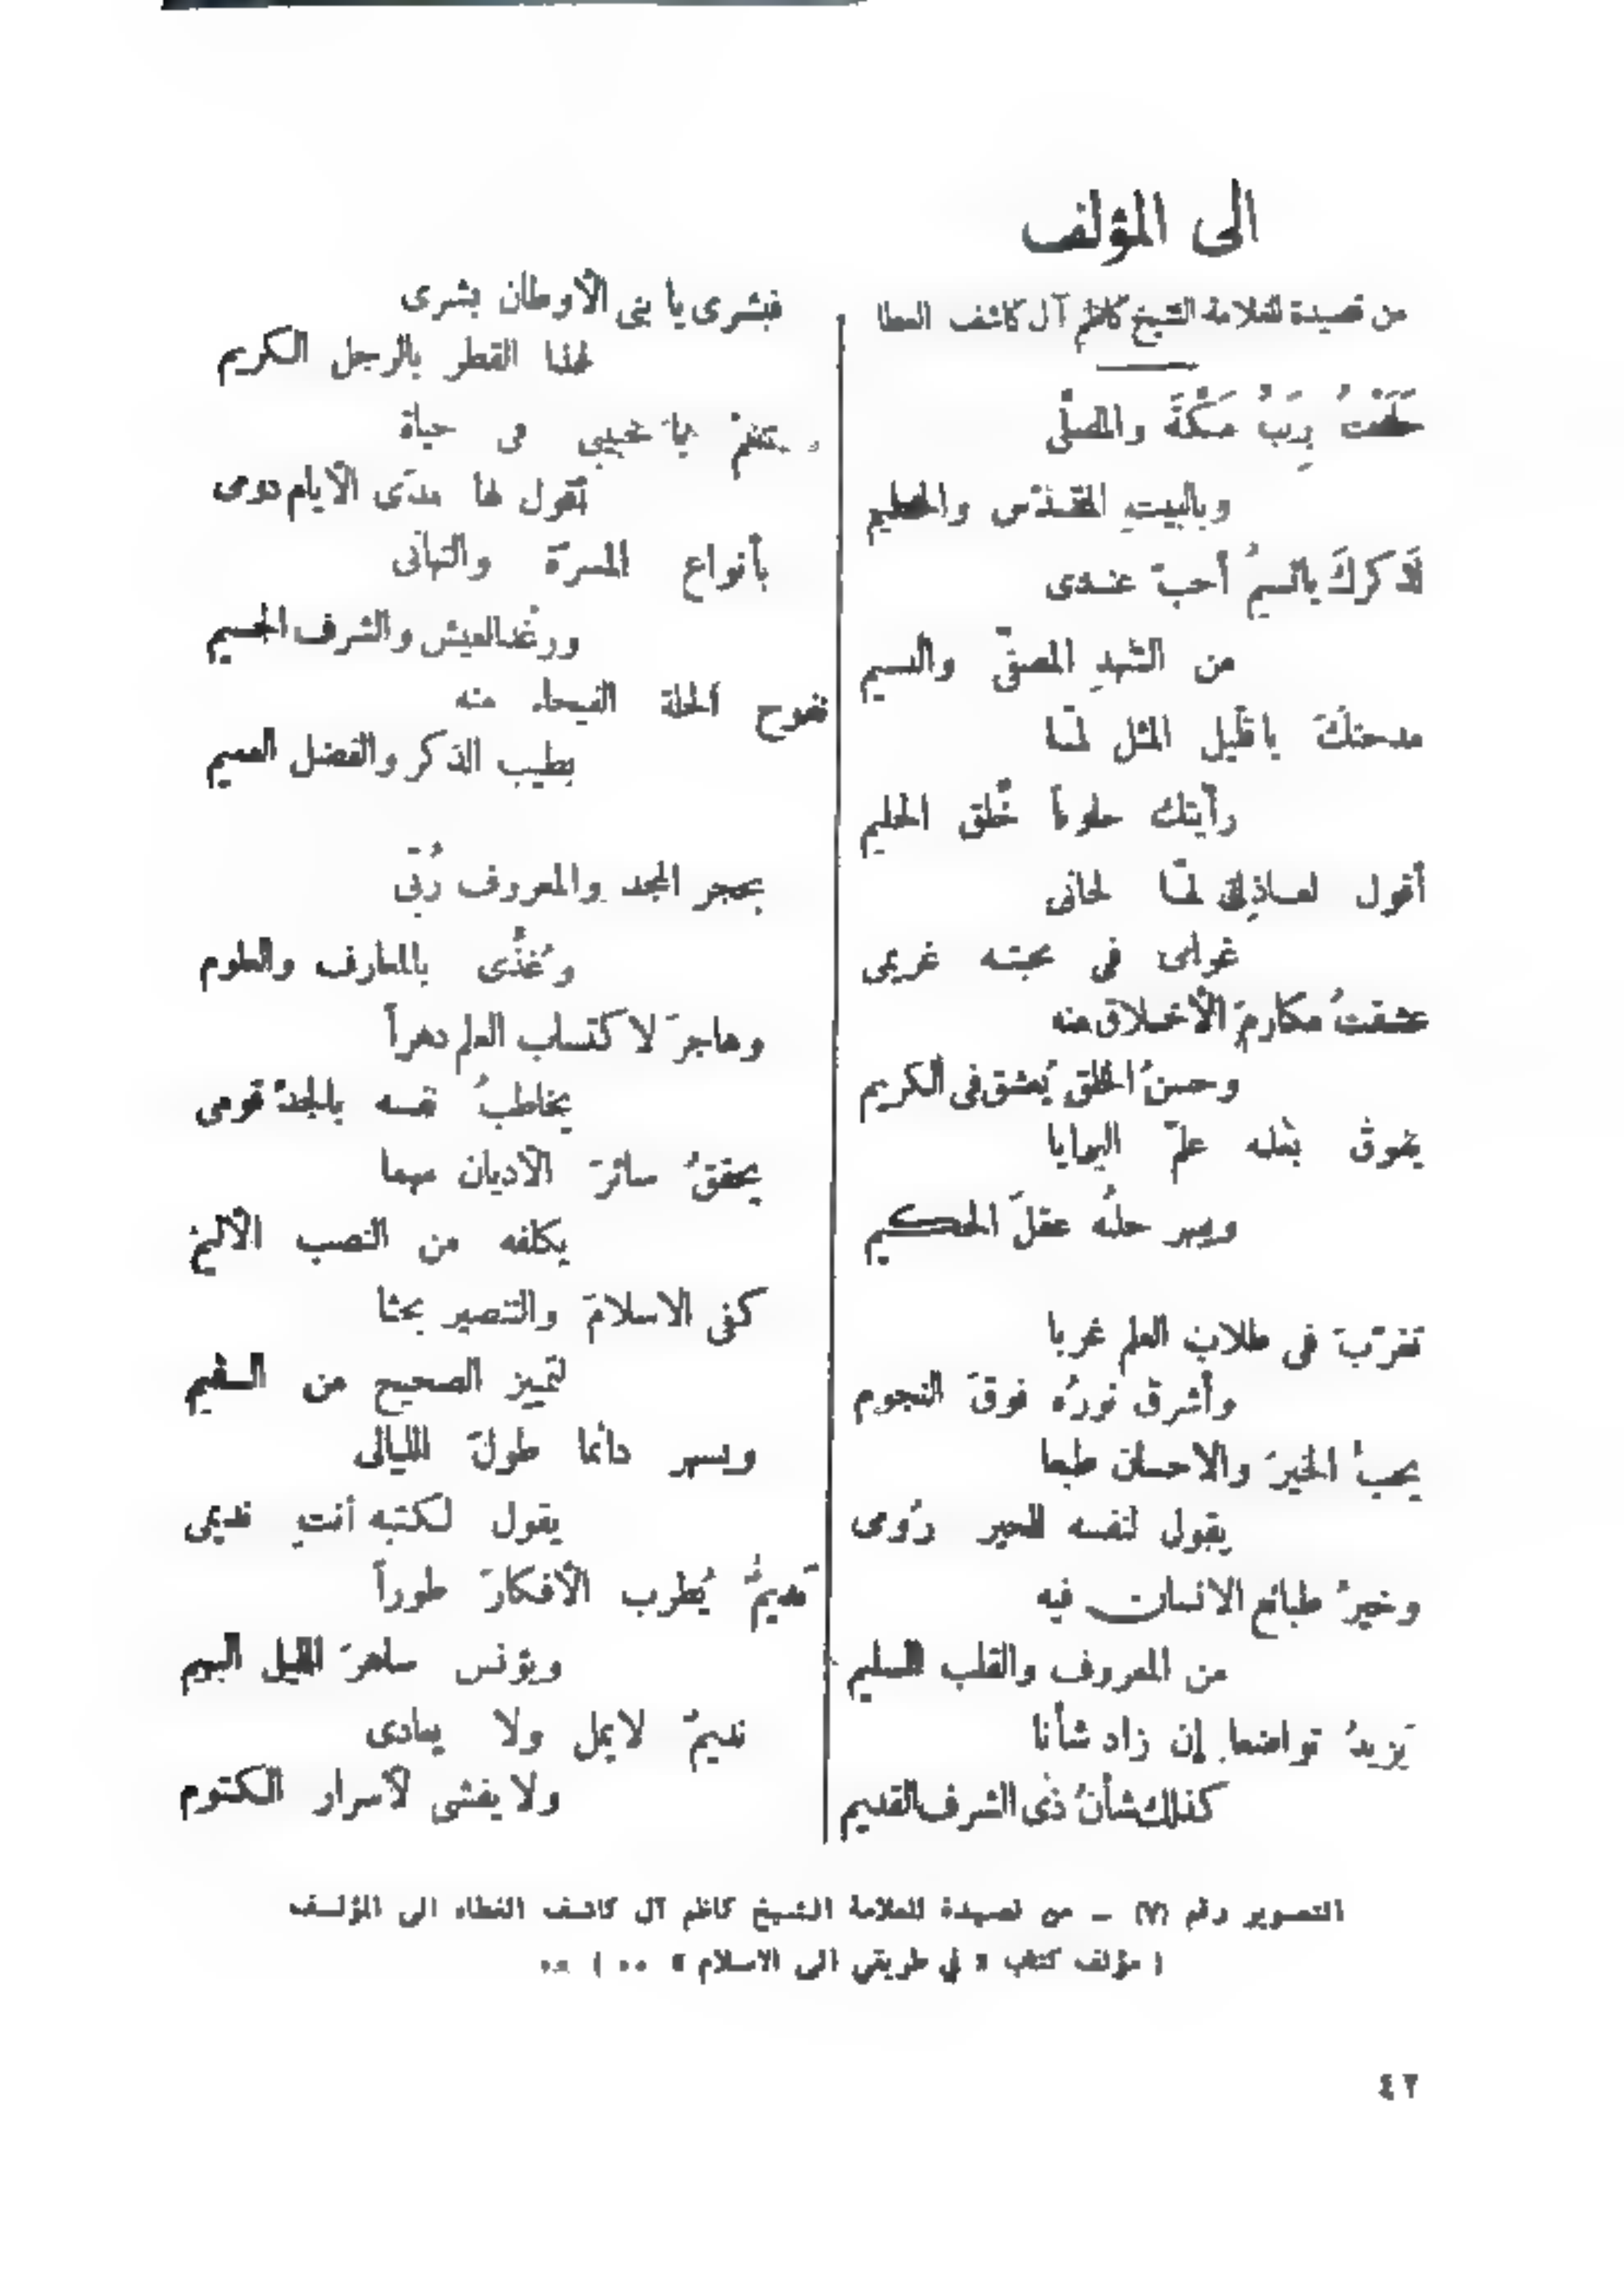 الى المؤلف
من قصيدة للعلامة الشيخ كاظم آل كاشف الغطا
حَلَفْتُ بِرَبِّ مَكَّةَ والمصلّى
وبالبيتِ المقدّس والحطيم
لَذكركَ بالسمُ أحبّ عندى
من الشهدِ المصفّى والنسيم
مدحتكَ ياقليل المثل لمّا
رأيتك حلوماً خُلق الحليم
أقول لعاذلى لمّا لحانى
غرامى فى محبّته غريمى
عشقتُ مكارمَ الأخلاق منه
وحسنُ الخلق يُعشق فى الكريم
يفوق بفعله علمَ البرايا
ويبهر حلمُه عقلَ الحكيم
تغرّبَ فى طلابِ العلم غربا
وأشرقَ نورُه فوقَ النجوم
يحبُّ الخيرَ والاحسان طبعا
يقول لنفسه للخير رُومى
وخيرُ طبائع الانسان فيه
من المعروف والقلب السليم
يَزيدُ تواضعا إن زاد شأنا
كذلك شأنُ ذى الشرف القديم
فبشرى يا بنى الأوطان بشرى
لهذا القطر بالرجل الكريم
يا حبيبى فى حياة
تقول لها مدَى الأيام دومى
بأنواع المسرّة والتهانى
ورغد العيش والشرف الجسيم
تفوح الحلة الفيحاء منه
بطيب الذكر والفضل العميم
بحجر المجد والمعروف رُبّى
وغُذّى بالمعارف والعلوم
وهاجرَ لاكتساب العلم دهراً
يخاطبُ نفسه بالمجدّ قومى
يحققُ سائرَ الأديان مهما
يكلفه من النصب الأليم
كفى الاسلامَ والتنصير بحثا
لتمييز الصحيح من السقيم
ويسهر دائما طولَ الليالى
يقول لكتبه أنتِ نديمى
نديمٌ يُطرب الأفكارَ طوراً
ويؤنس ساهرَ الليل البهيم
نديمٌ لايمل ولا يعادى
ولا يفشى لأسرار الكتوم
التصوير رقم (٧) ــ من قصيدة للعلامة الشيخ كاظم آل كاشف الغطاء الى المؤلف
( مؤلف كتاب « فى طريقى الى الاسلام » ٠٠ ) ٠٠
٤٢